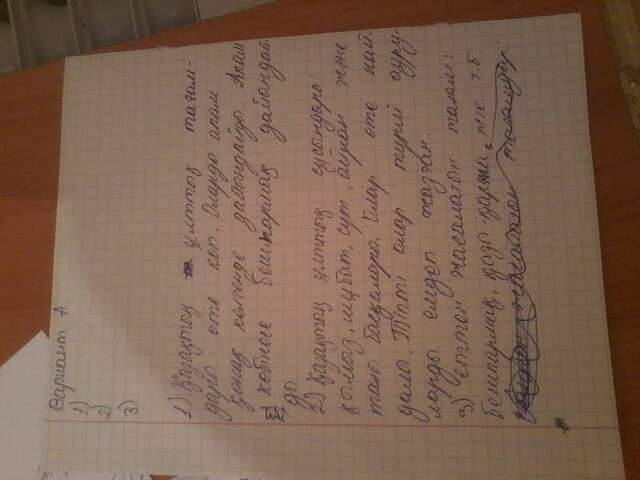 Вариант А
1)
2)
3)
1) Қазақтың ұлттық тағам-
дары өте көп. Оларды апам
қонақ келгенде дайындайды. Апам
көбінесе бешпармақ дайындай-
ды.
2) Қазақтың ұлттық сусындары:
қымыз, шұбат, сүт, айран және
тағы басқалары. Олар өте пай-
далы. Тіпті олар түрлі ауру-
ларды емдеп жазған.
3) еттен жасалатын тағам:
бешпармақ, қазы-қарта, т.б
жасалатын тағамдар: